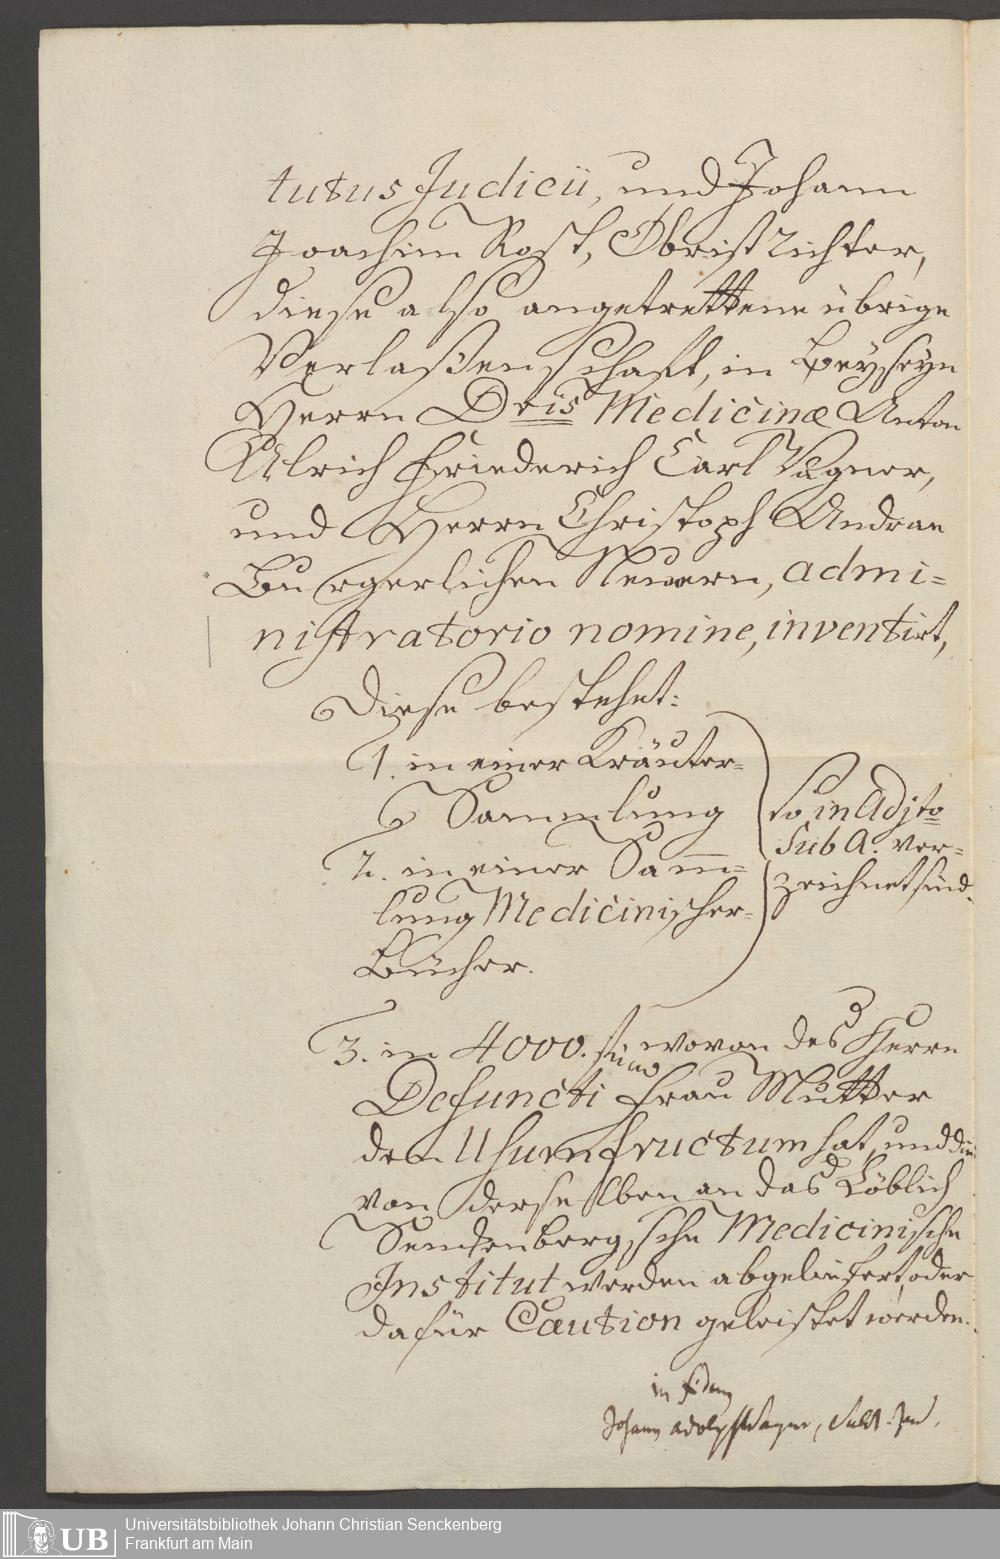 tutus Judicii, und Johann
Joachim Rost, Obrist Richter,
diese also angetrettene übrige
Verlaßenschaft, in Beyseyn
Herrn Dris Medicinæ Anton
Ulrich Friederich Carl Vagner,
und Herrn Christoph Andreae
Burgerlichen Neunern, admi=
nistratorio nomine, inventirt,
Diese bestehet:
1. in einer Kräuter=
Sammlung
2. in einer Sam̅=
lung Medicinischer=
Bücher.
so in Adjto
sub A. ver=
zeichnet sind.
3. in 4000. f wovon des Herrn
Defuncti Frau Mutter
den Usumfructum hat, und die
von derselben an das Löblich
Senckenbergische Medicinische
Institut werden abgeliefert, oder
dafür Caution geleistet werden.
in fidem
Johann Adolph Wagner,
UB
Universitätsbibliothek Johann Christian Senckenberg
Frankfurt am Main